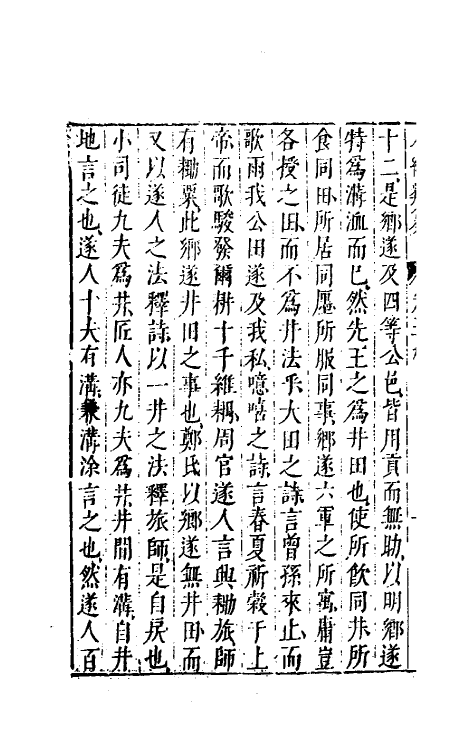 十二是鄉遂及四等公邑皆用貢而無助以明鄉遂
特爲溝洫而已然先王之爲井田也使所飲同井所
食同田所居同廛所服同事鄉遂六軍之所寓庸豈
各授之田而不爲井法乎大田之詩言曾孫來止而
歌雨我公田遂及我私噫嘻之詩言春夏祈穀于上
帝而歌駿發爾耕十千維耦周官遂人言興耡旅師
有耡粟此鄉遂井田之事也鄭氏以鄉遂無井田而
又以遂人之法釋詩以一井之法釋旅師是自戾也
小司徒九夫爲井匠人亦九夫爲井井間有溝自井
地言之也遂人十夫有溝兼溝涂言之也然遂人百